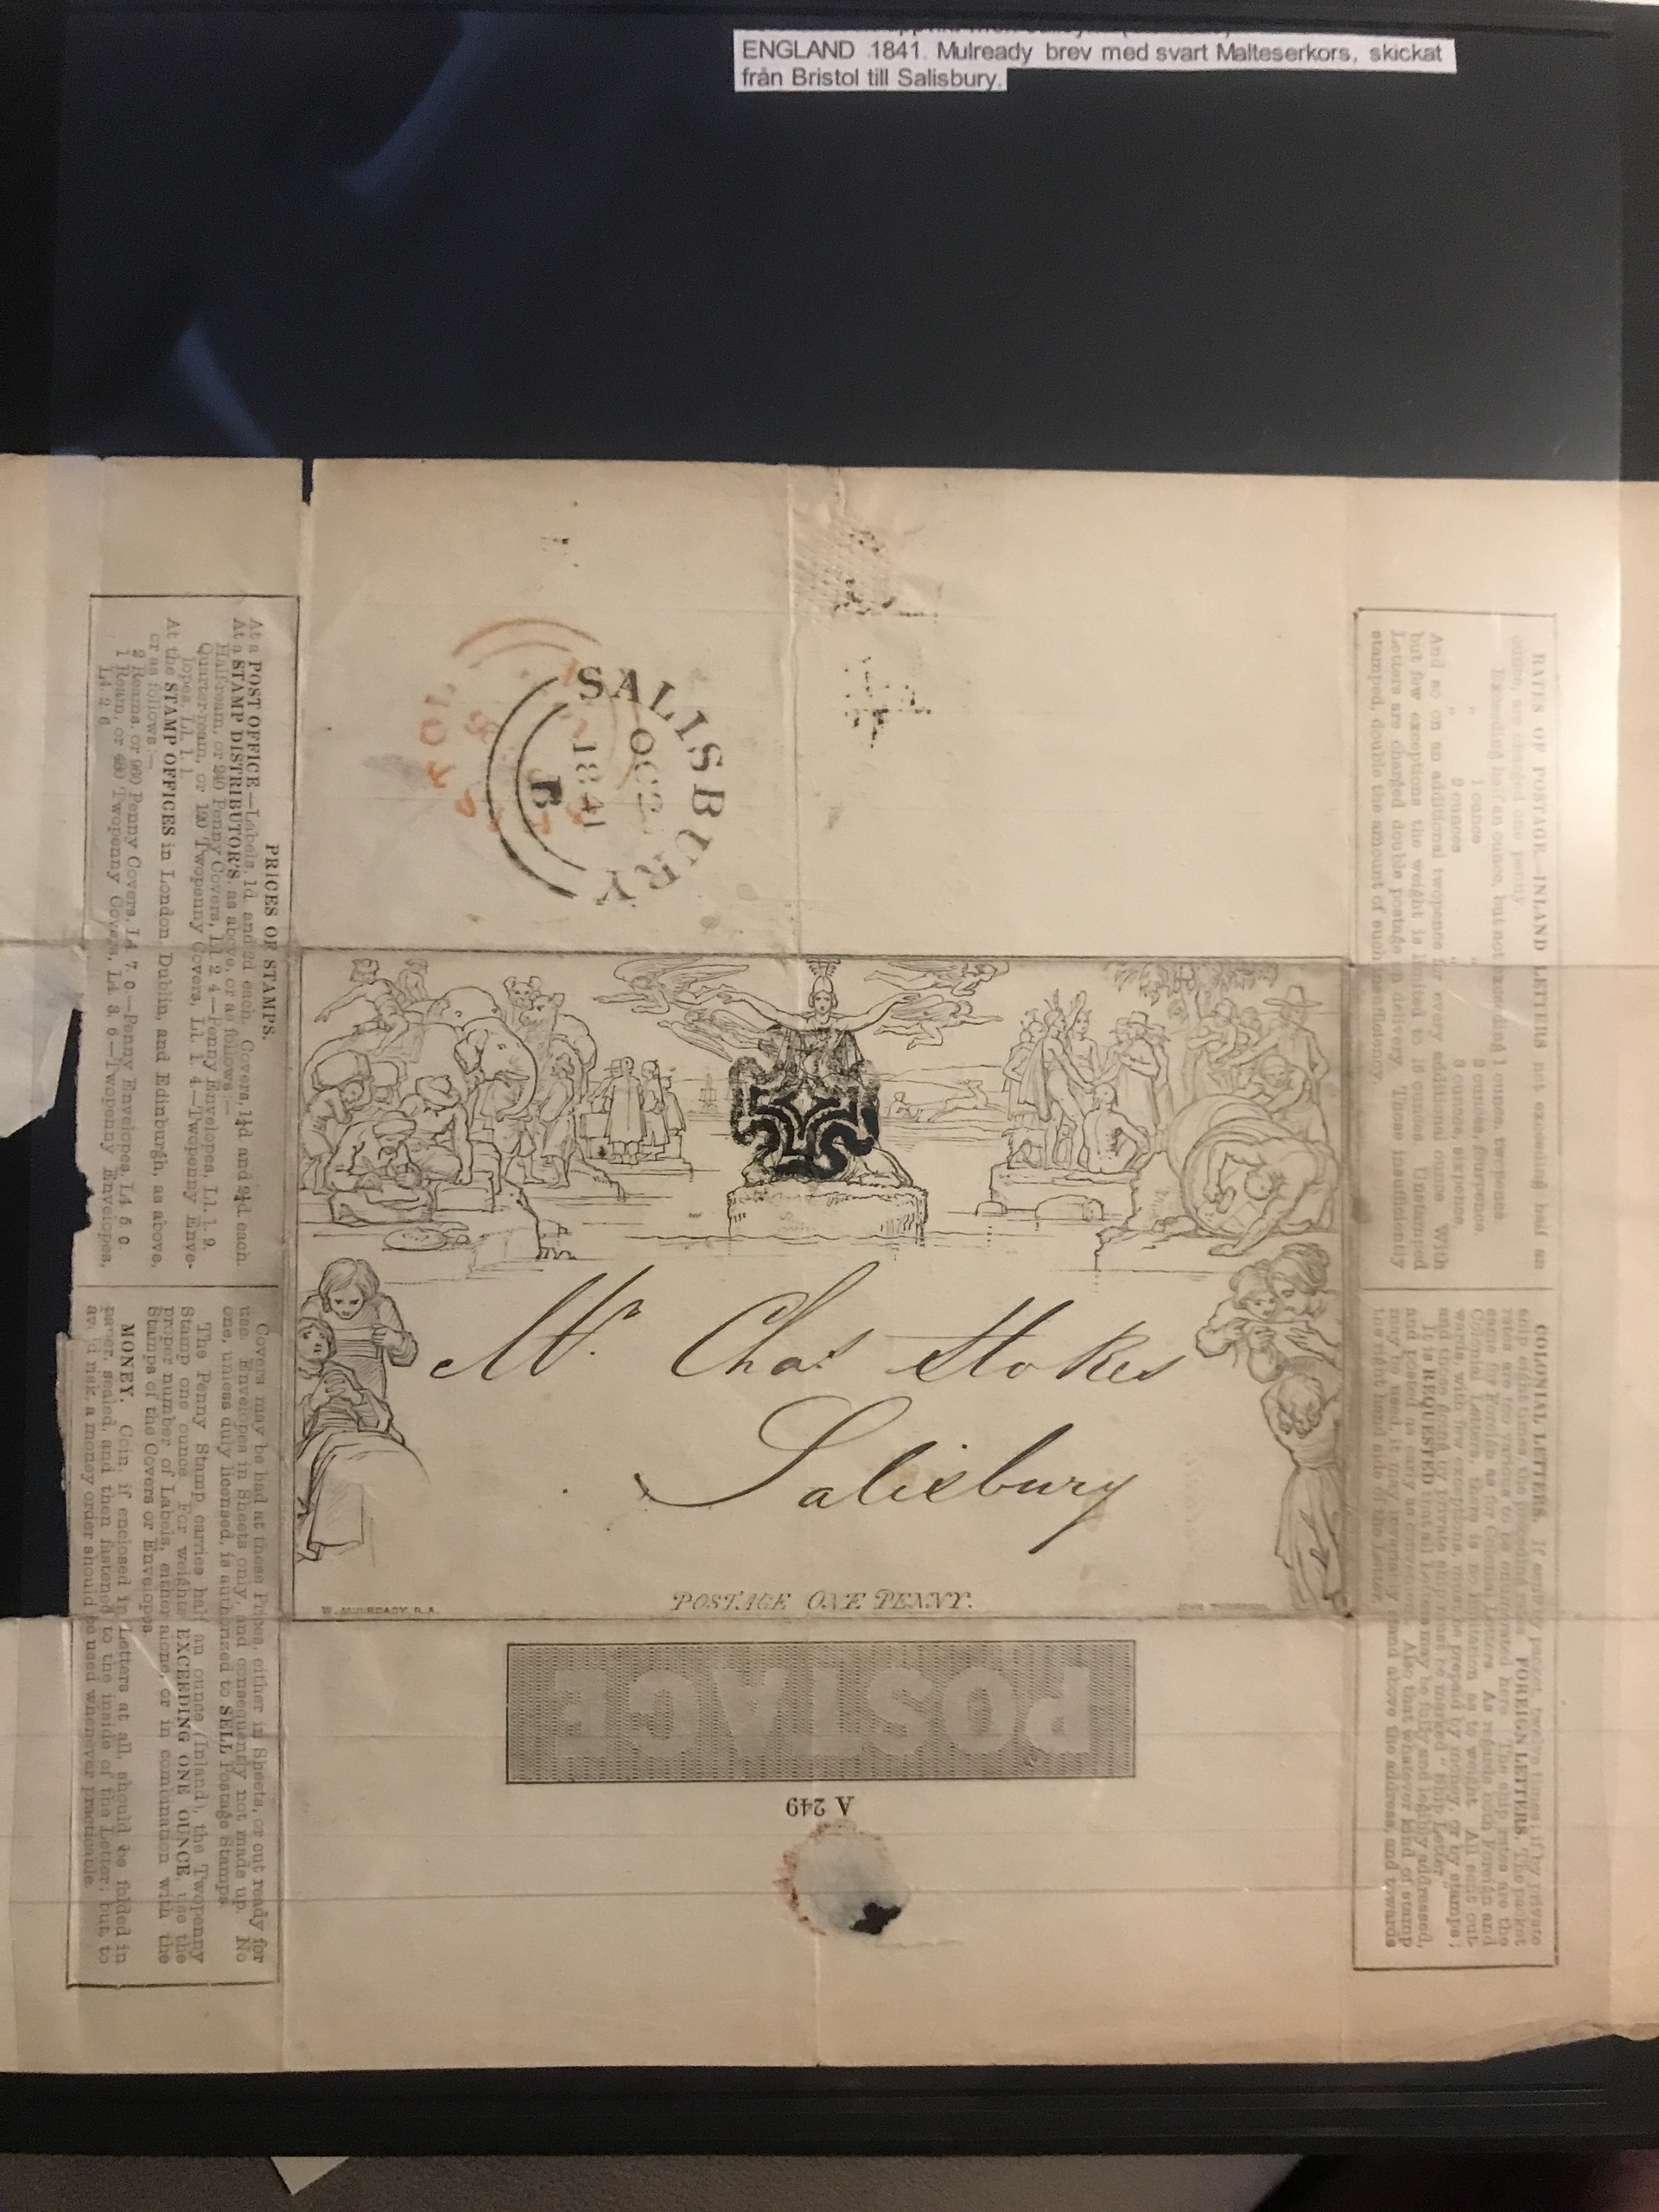 ENGLAND 1841. Mulready brev med svart Malteserkors, skickat
från Bristol till Salisbury.
SALISBURY
OC 2
1841
B
PRICES OF STAMPS.
At a POST OFFICE—Labels, 1d and 2d each. Covers, 1¼d and 2¼d each.
At a STAMP DISTRIBUTOR'S, as above, or as follows:—
Half-ream, or 240 Penny Covers, L1 2 4—Penny Envelopes, L1. 1. 9.
Quarter-ream, or 120 Twopenny Covers, L1. 1. 4—Twopenny Enve-
lopes, L1. 1. 1
At the STAMP OFFICES in London, Dublin, and Edinburgh, as above,
or as follows:—
2 Reams, or 960 Penny Covers, L4. 7. 0—Penny Envelopes, L4 5 0.
1 Ream, or 480 Twopenny Covers, L4. 3. 6—Twopenny Envelopes,
L4 2 6
Covers may be had at these Prices, either in Sheets, or cut ready for
use. Envelopes in Sheets only, and consequently not made up. No
one, unless duly licensed, is authorized to SELL Postage Stamps.
The Penny Stamp carries half an ounce (Inland), the Twopenny
Stamp one ounce. For weights EXCEEDING ONE OUNCE, use the
proper number of Labels, either alone, or in combination with the
Stamps of the Covers or Envelopes.
MONEY. Coin, if enclosed in Letters at all, should be folded in
paper, sealed, and then fastened to the inside of the Letter; but to
avoid risk, a money order should be used whenever practicable.
RATES OF POSTAGE—INLAND LETTERS not exceeding half an
ounce, are charged one penny.
Exceeding half an ounce, but not exceeding 1 ounce, twopence.
" 1 ounce " 2 ounces, fourpence.
" 2 ounces " 3 ounces, sixpence.
And so on an additional twopence for every additional ounce. With
but few exceptions the weight is limited to 16 ounces. Unstamped
Letters are charged double postage on delivery. Those insufficiently
stamped, double the amount of such insufficiency.
COLONIAL LETTERS. If sent by packet, twelve times, if by private
ship eight times the preceding rates. FOREIGN LETTERS. The packet
rates are too various to be enumerated here. The ship rates are the
same for Foreign as for Colonial Letters. As regards both Foreign and
Colonial Letters, there is no limitation as to weight. All sent out-
wards, with few exceptions, must be prepaid by money, or by stamps;
and those going by private ship must be marked "Ship Letter."
It is REQUESTED that all Letters may be fully and legibly addressed,
and posted as early as convenient. Also that whatever kind of stamp
may be used, it may invariably stand above the address, and towards
the right hand side of the Letter.
Mr. Chas Stokes
Salisbury
W. MULREADY, R.A.
POSTAGE ONE PENNY.
JOHN THOMPSON
POSTAGE
A 249